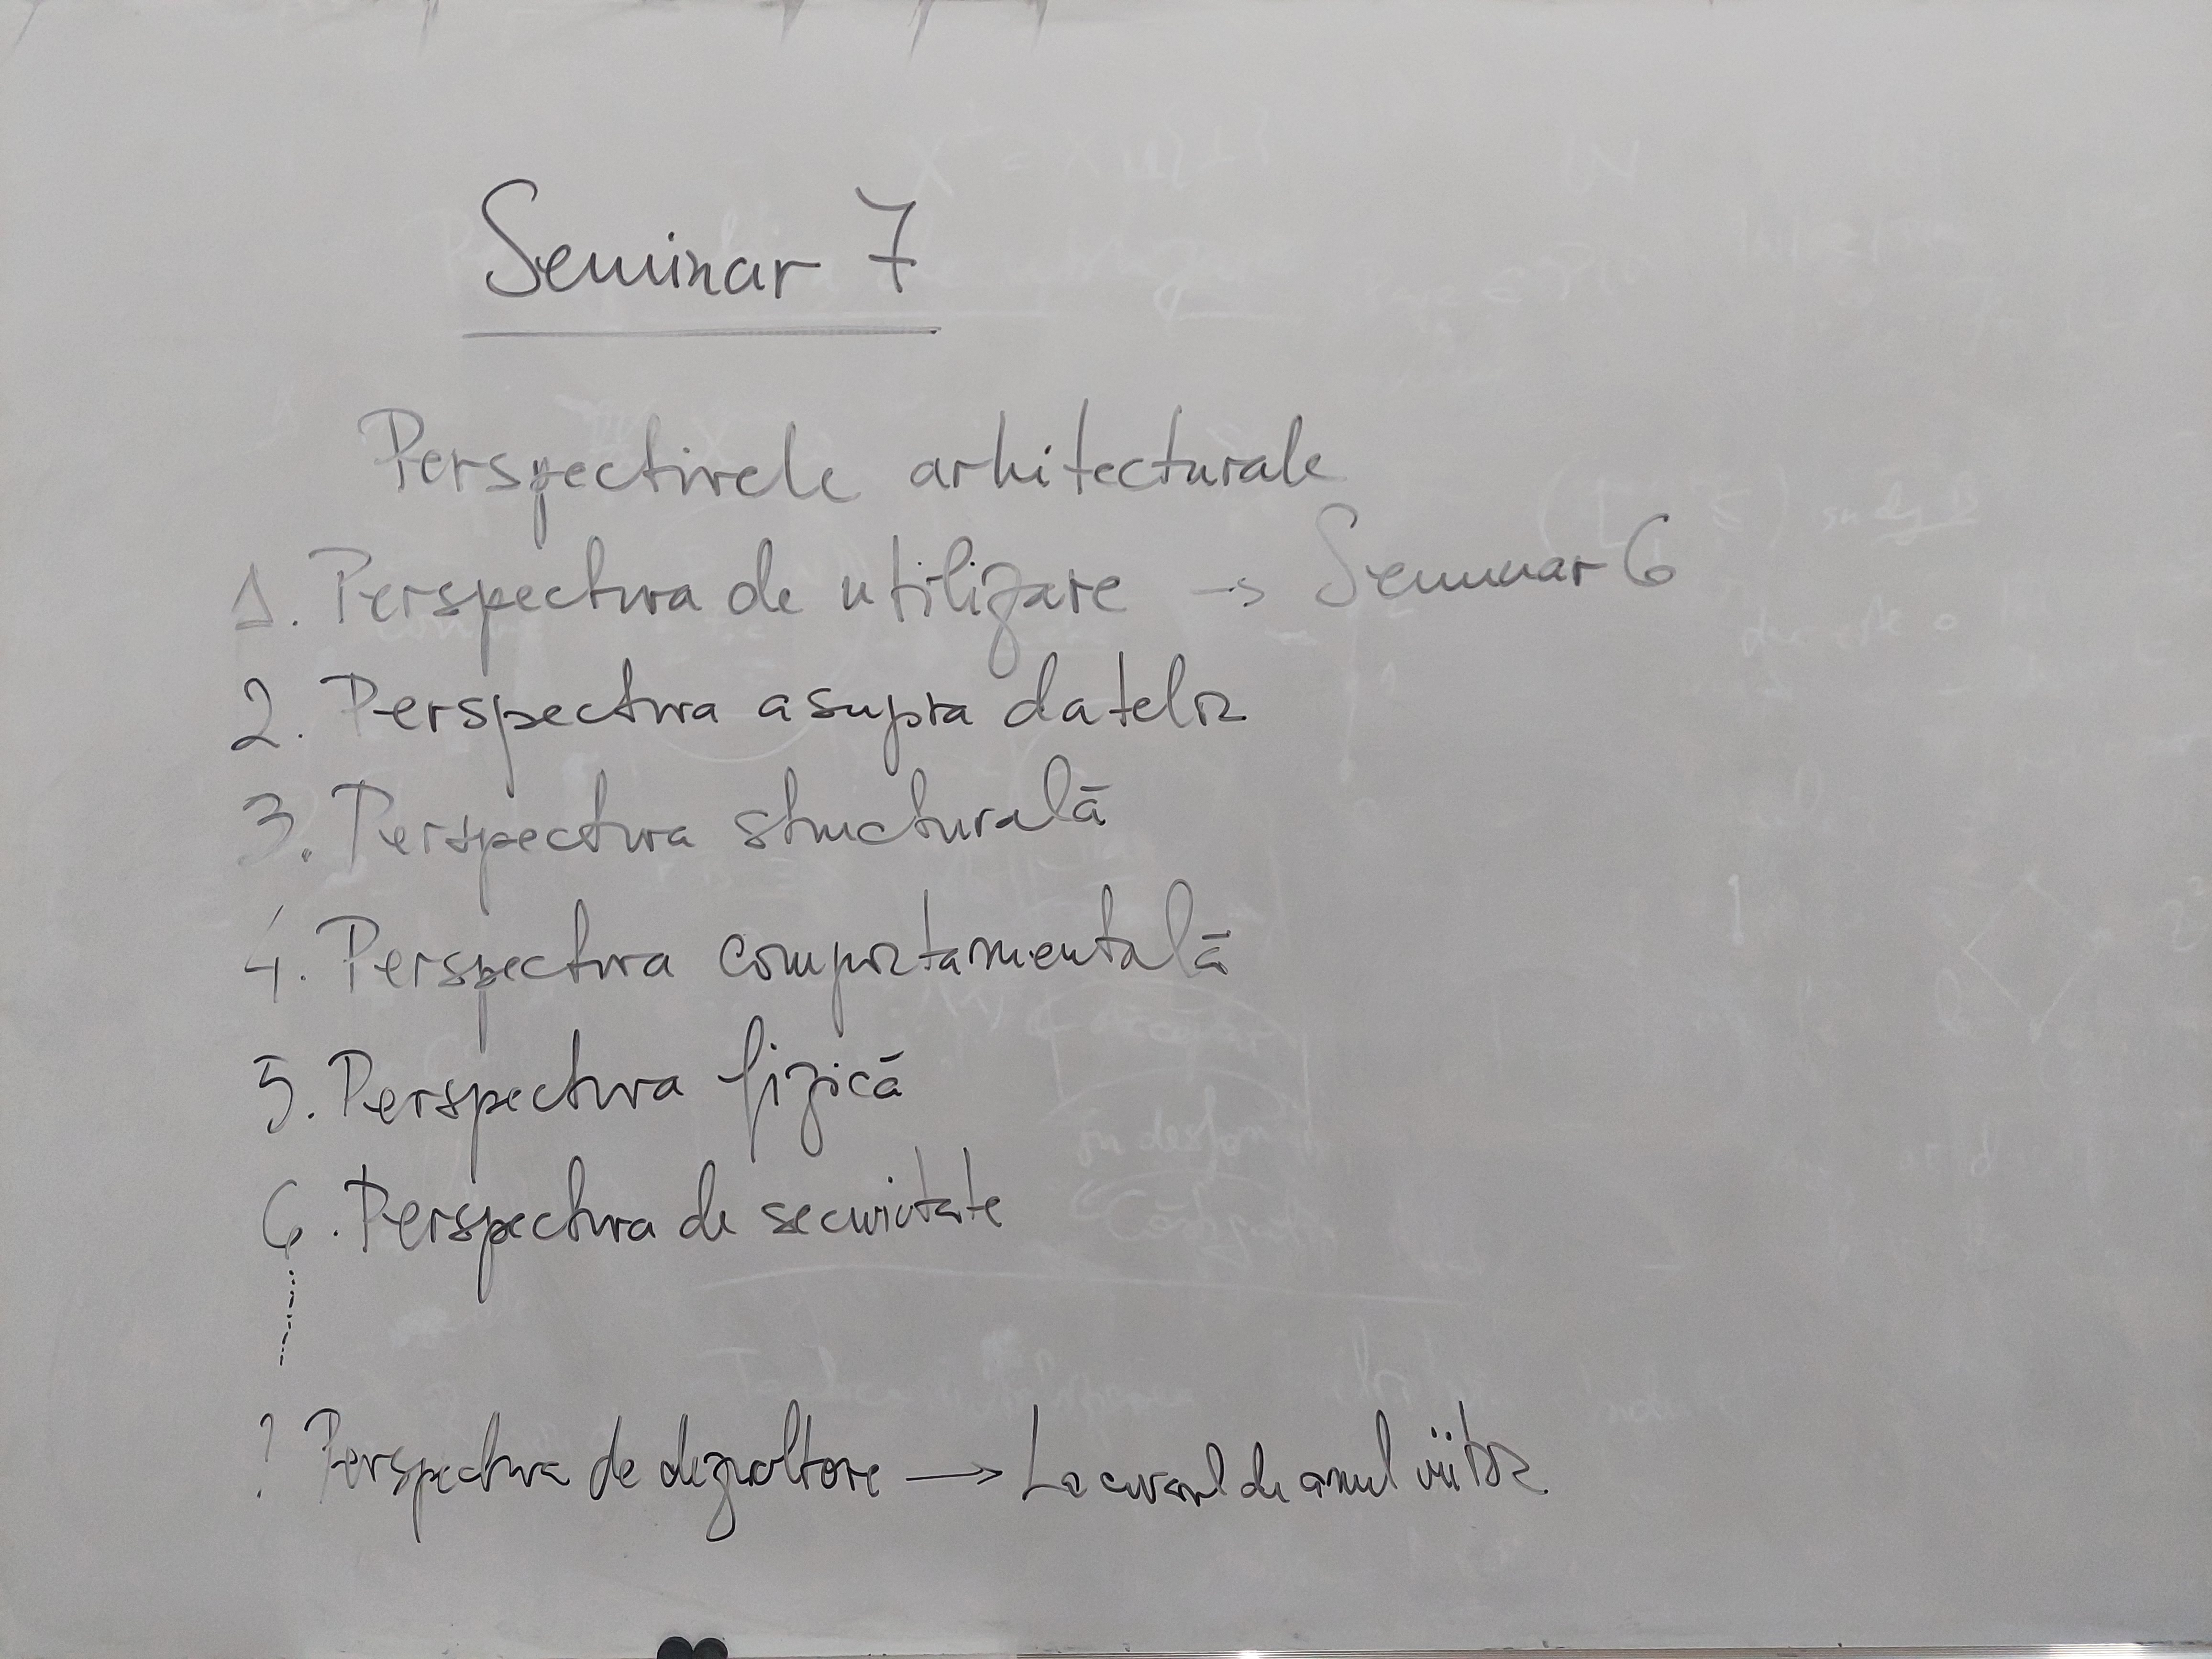 Seminar 7
Perspectivele arhitecturale
1. Perspectiva de utilizare → Seminar 6
2. Perspectiva asupra datelor
3. Perspectiva structurală
4. Perspectiva comportamentală
5. Perspectiva fizică
6. Perspectiva de securitate
? Perspectiva de dezvoltare → La cursul de anul viitor